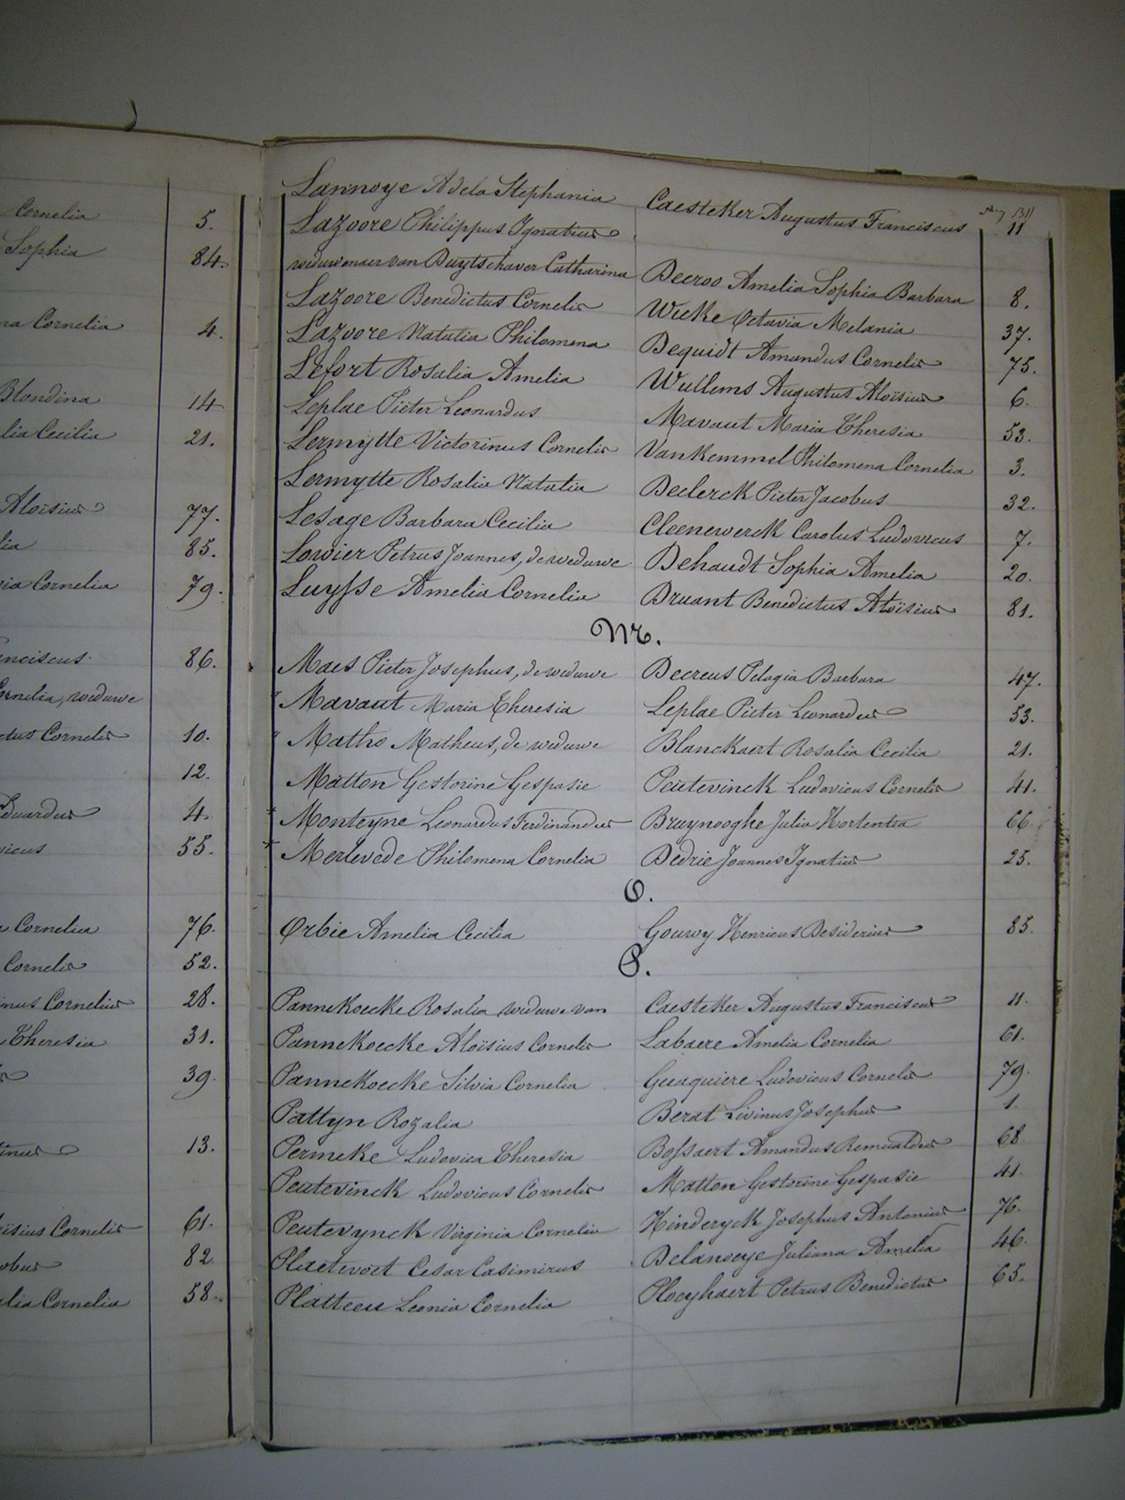 Cornelia 5.
Sophia 84.
na Cornelia 4.
Blondina 14
lia Cecilia 21.
Aloïsius 77.
lia 85.
via Cornelia 79.
nciscus 86.
Cornelia, weduwe
ctus Cornelis 10.
12.
Eduardus 4.
vicus 55.
a Cornelia 76.
Cornelis 52.
inus Cornelius 28.
Theresia 31.
39.
tinus 13.
oïsius Cornelis 61.
obus 82
alia Cornelia 58.
Lannoye Adela Stephania Caesteker Augustus Franciscus 11
Lazoore Philippus Ignatius
weduwenaer van Duytschaver Catharina Decroo Amelia Sophia Barbara 8.
Lazoore Benedictus Cornelis Wicke Octavia Melania 37.
Lazoore Natalia Philomena Dequidt Amandus Cornelis 75.
Lefort Rosalia Amelia Wullems Augustus Aloïsius 6.
Leplae Pieter Leonardus Mavaut Maria Theresia 53.
Lermytte Victorinus Cornelis Van Kemmel Philomena Cornelia 3.
Lermytte Rosalia Natalia Declerck Pieter Jacobus 32.
Lesage Barbara Cecilia Cleenewerck Carolus Ludovicus 7.
Lowier Petrus Joannes, de weduwe Dehaudt Sophia Amelia 20.
Luysse Amelia Cornelia Druant Benedictus Aloïsius 81.
M.
Maes Pieter Josephus, de weduwe Decreus Pelagia Barbara 47.
Mavaut Maria Theresia Leplae Pieter Leonardus 53.
Matho Matheus, de weduwe Blanckaert Rosalia Cecilia 21.
Matton Gestorine Gespasie Peutevinck Ludovicus Cornelis 41.
Monteyne Leonardus Ferdinandus Bruynooghe Julia Hortentia 66.
Merlevede Philomena Cornelia Dedrie Joannes Ignatius 25.
O.
Orbie Amelia Cecilia Gouwy Henricus Desiderius 85.
P.
Pannekoecke Rosalia weduwe van Caesteker Augustus Franciscus 11.
Pannekoecke Aloïsius Cornelis Labaere Amelia Cornelia 61.
Pannekoecke Silvia Cornelia Gesquiere Ludovicus Cornelis 79.
Pattyn Rozalia Berat Livinus Josephus 1.
Permeke Ludovica Theresia Bossaert Amandus Remualdus 68
Peutevinck Ludovicus Cornelis Matton Gestorine Gespasie 41.
Peutevynck Virginia Cornelia Hinderyck Josephus Antonius 76.
Plaetevoet Cesar Casimirus Delanoeye Juliana Amelia 46.
Platteeu Leonia Cornelia Ploeyhaert Petrus Benedictus 65.